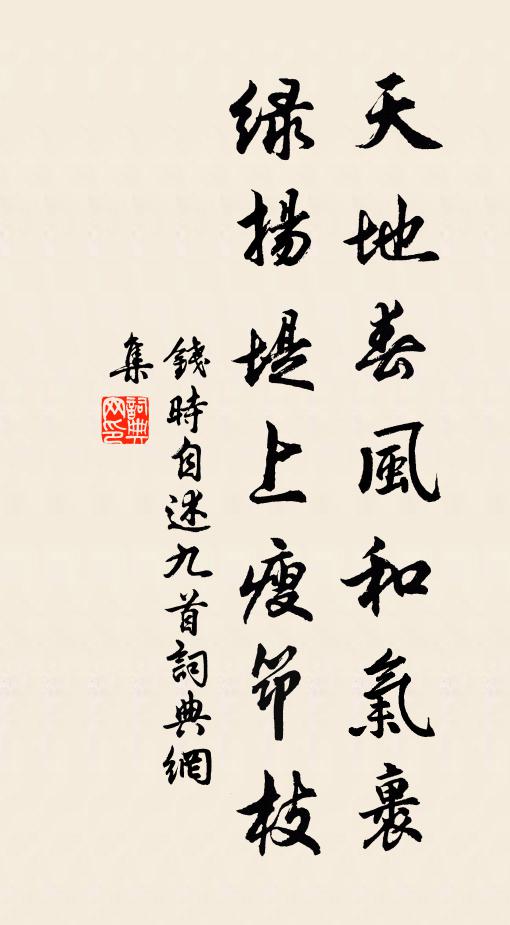 天地春風和氣裹
緑揚堤上瘦笻枝
錢時自述九首詞典網
集
詞典网印